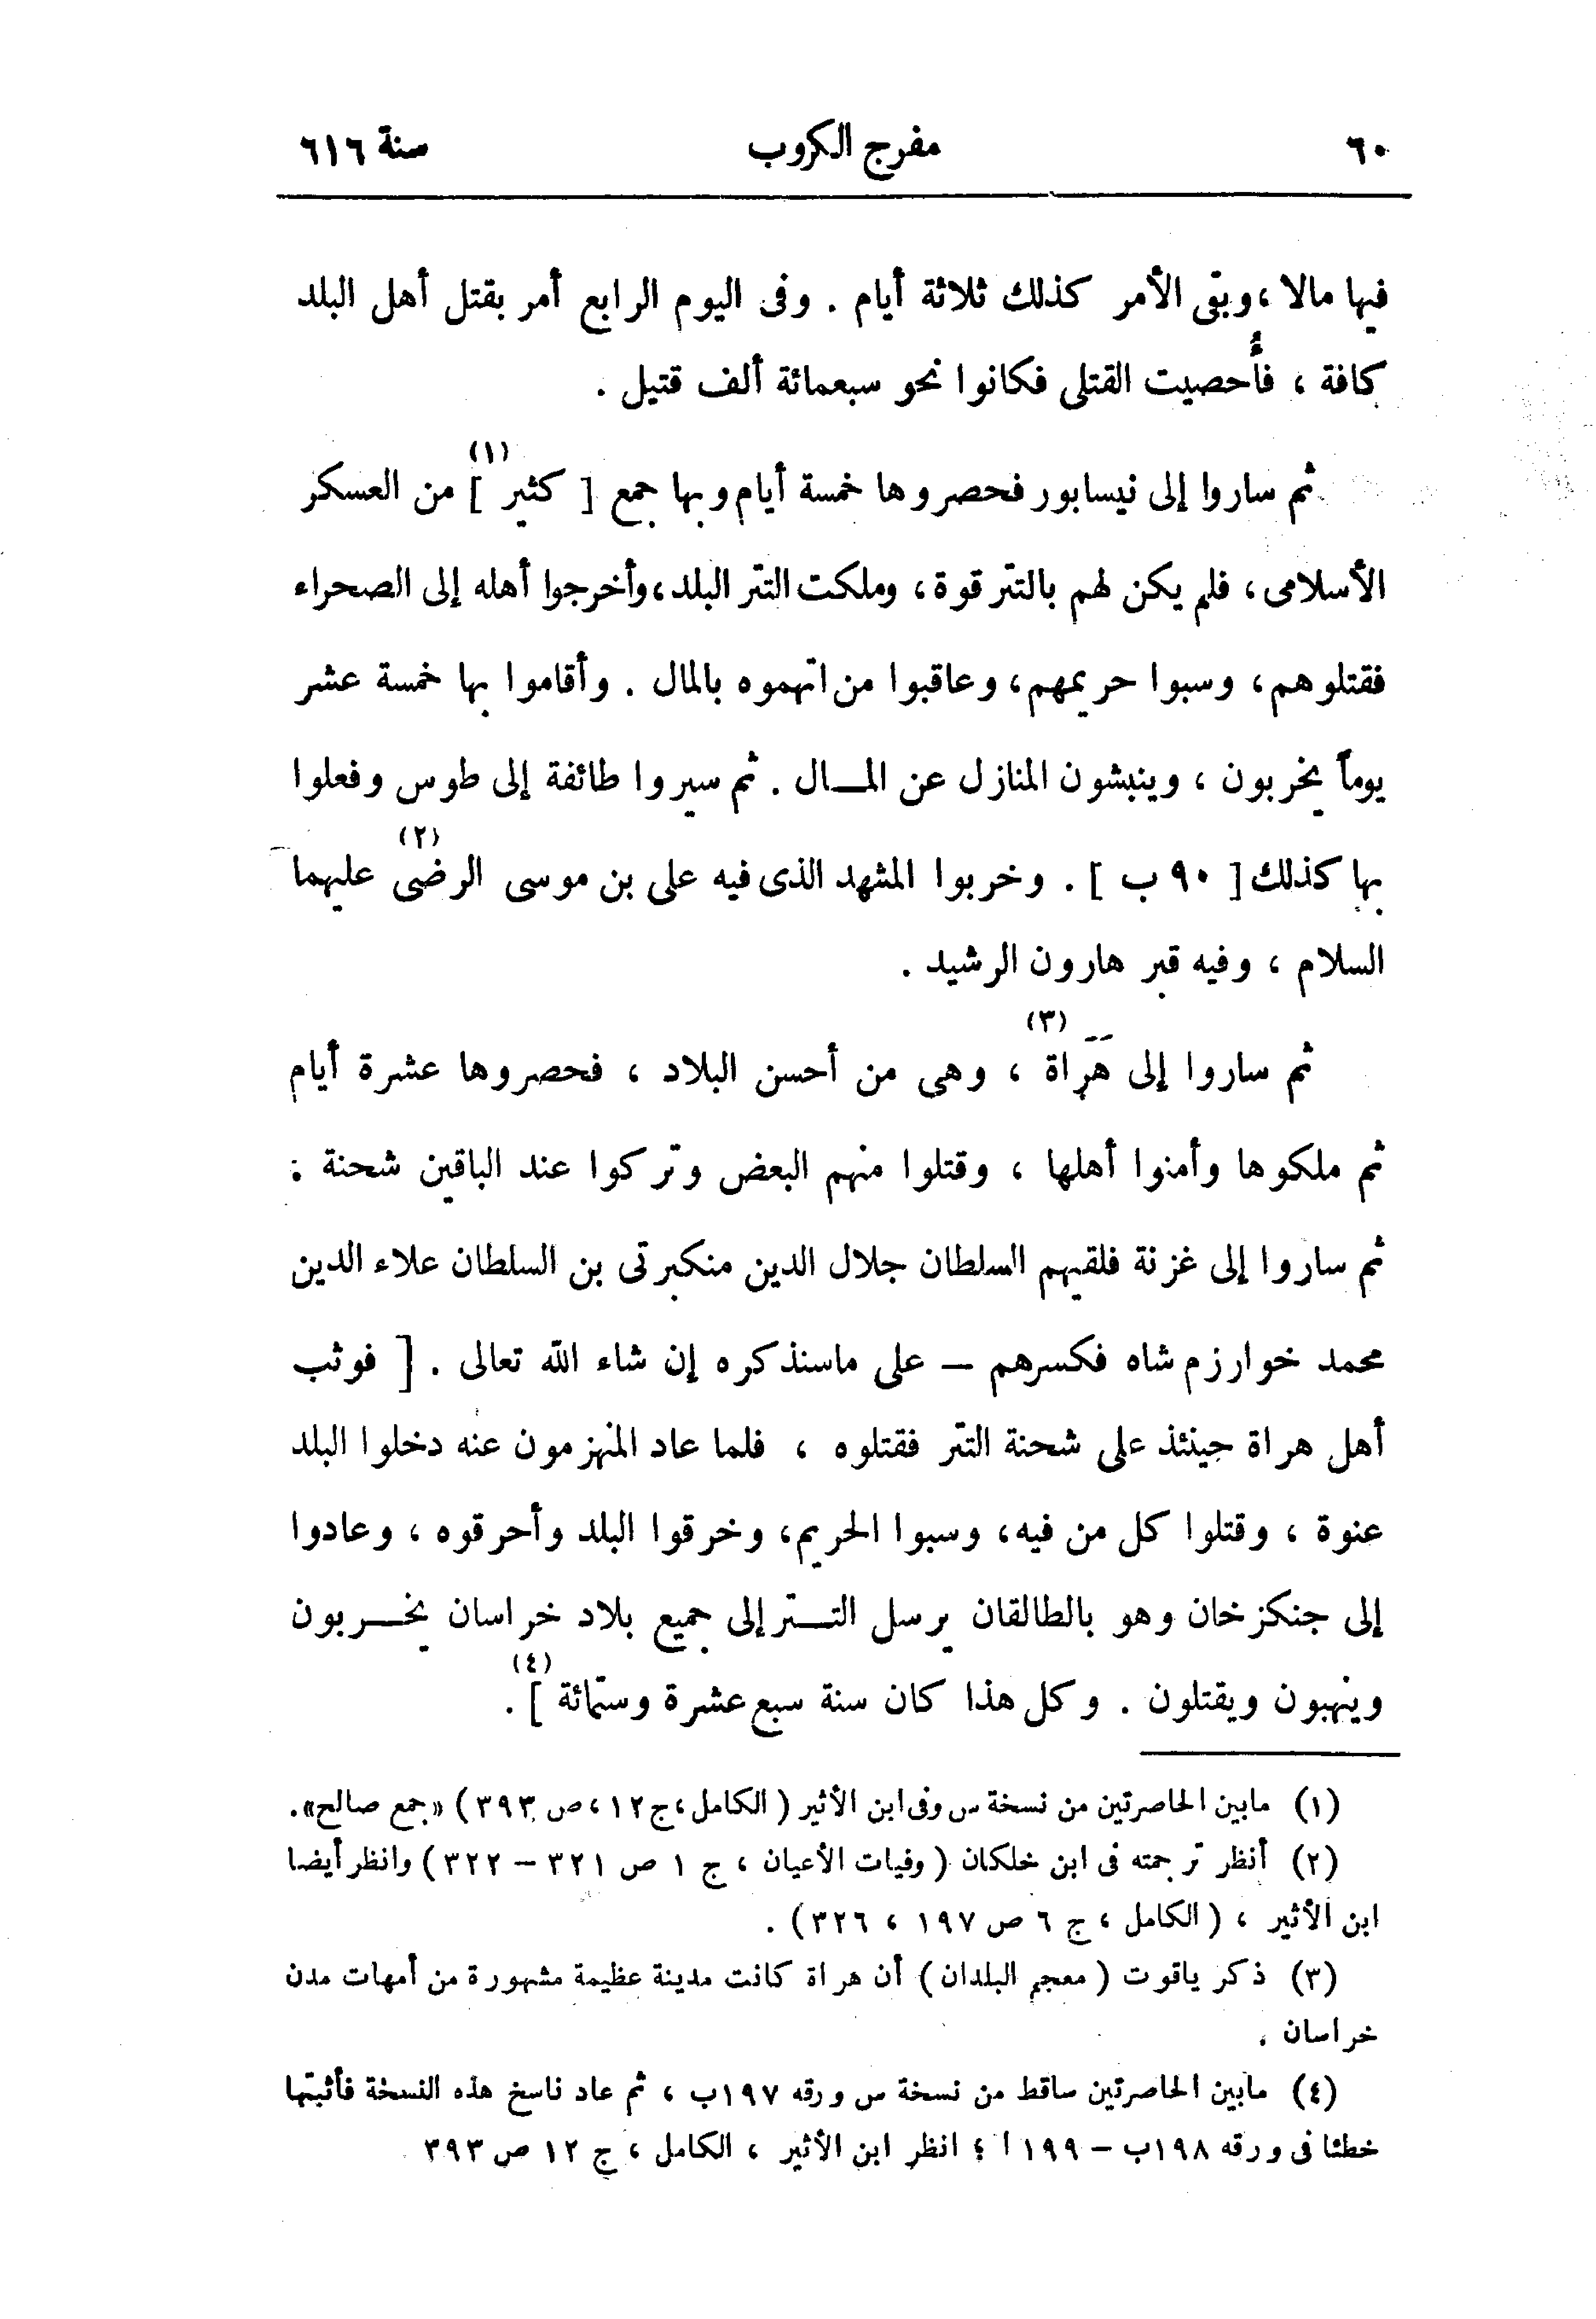 ٦٠ مفرج الكروب سنة ٦١٦
فيها مالا ، وبقى الأمر كذلك ثلاثة أيام . وفى اليوم الرابع أمر بقتل أهل البلد
كافة ، فأُحصيت القتلى فكانوا نحو سبعمائة ألف قتيل .
ثم ساروا إلى نيسابور فحصروها خمسة أيام وبها جمع [ كثير ](١) من العسكر
الأسلامى ، فلم يكن لهم بالتتر قوة ، وملكت التتر البلد ، وأخرجوا أهله إلى الصحراء
فقتلوهم ، وسبوا حريمهم ، وعاقبوا من اتهموه بالمال . وأقاموا بها خمسة عشر
يوماً يخربون ، وينبشون المنازل عن المــال . ثم سيروا طائفة إلى طوس وفعلوا
بها كذلك [ ٩٠ ب ] . وخربوا المشهد الذى فيه على بن موسى الرضى(٢) عليهما
السلام ، وفيه قبر هارون الرشيد .
ثم ساروا إلى هَرَاة(٣) ، وهى من أحسن البلاد ، فحصروها عشرة أيام
ثم ملكوها وأمنوا أهلها ، وقتلوا منهم البعض وتركوا عند الباقين شحنة :
ثم ساروا إلى غزنة فلقيهم السلطان جلال الدين منكبرتى بن السلطان علاء الدين
محمد خوارزم شاه فكسرهم – على ماسنذكره إن شاء الله تعالى . [ فوثب
أهل هراة حينئذ على شحنة التتر فقتلوه ، فلما عاد المنهزمون عنه دخلوا البلد
عنوة ، وقتلوا كل من فيه ، وسبوا الحريم ، وخرقوا البلد وأحرقوه ، وعادوا
إلى جنكزخان وهو بالطالقان يرسل التــتر إلى جميع بلاد خراسان يخــربون
وينهبون ويقتلون . وكل هذا كان سنة سبع عشرة وستمائة ](٤) .
(١) مابين الحاصرتين من نسخة س وفى ابن الأثير ( الكامل ، ج ١٢ ، ص ٣٩٣ ) «جمع صالح» .
(٢) أنظر ترجمته فى ابن خلكان ( وفيات الأعيان ، ج ١ ص ٣٢١ – ٣٢٢ ) وانظر أيضا
ابن الأثير ، ( الكامل ، ج ٦ ص ١٩٧ ، ٣٢٦ ) .
(٣) ذكر ياقوت ( معجم البلدان ) أن هراة كانت مدينة عظيمة مشهورة من أمهات مدن
خراسان .
(٤) مابين الحاصرتين ساقط من نسخة س ورقه ١٩٧ب ، ثم عاد ناسخ هذه النسخة فأثبتها
خطئا فى ورقه ١٩٨ب – ١٩٩ ا ؛ انظر ابن الأثير ، الكامل ، ج ١٢ ص ٣٩٣